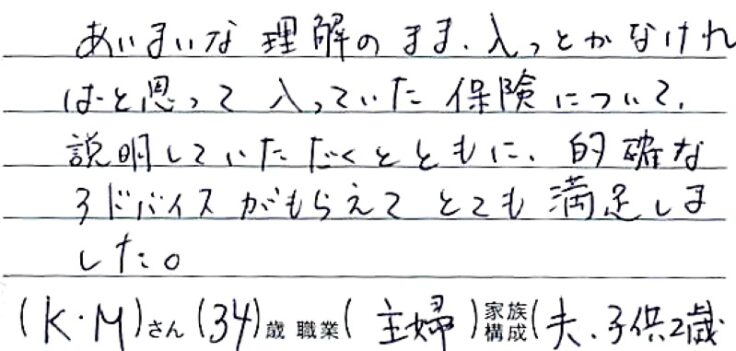 あいまいな理解のまま、入っとかなけれ
ばと思って入っていた保険について、
説明していただくとともに、的確な
アドバイスがもらえてとても満足しま
した。
(K・M)さん(34)歳 職業(主婦)家族構成(夫、子供2歳